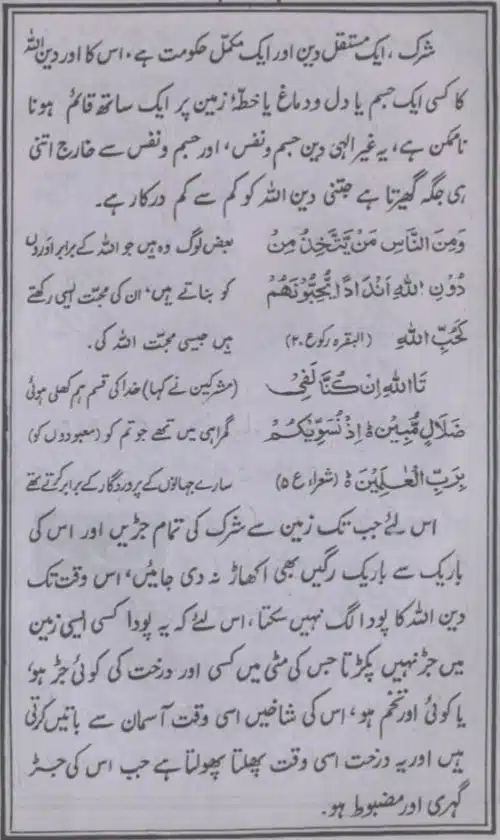 شرک، ایک مستقل دین اور ایک مکمل حکومت ہے، اس کا اور دین اللہ
کا کسی ایک جسم یا دل و دماغ یا خطۂ زمین پر ایک ساتھ قائم ہونا
ناممکن ہے، یہ غیر الٰہی دین جسم و نفس، اور جسم و نفس سے خارج اتنی
ہی جگہ گھیرتا ہے جتنی دین اللہ کو کم سے کم درکار ہے۔
وَمِنَ النَّاسِ مَنْ يَّتَّخِذُ مِنْ بعض لوگ وہ ہیں جو اللہ کے برابر اوروں
دُوْنِ اللهِ اَنْدَادًا يُّحِبُّوْنَهُمْ کو بناتے ہیں، ان کی محبت ایسی رکھتے
كَحُبِّ اللهِ (البقرہ رکوع ۲۰) ہیں جیسی محبت اللہ کی۔
تَااللهِ اِنْ كُنَّا لَفِيْ (مشرکین نے کہا) خدا کی قسم ہم کھلی ہوئی
ضَلَالٍ مُّبِيْنٍ ہ اِذْ نُسَوِّيْكُمْ گمراہی میں تھے جو تم کو (معبودوں کو)
بِرَبِّ الْعٰلَمِيْنَ ہ (شعراء ع ۵) سارے جہانوں کے پروردگار کے برابر کرتے تھے
اس لئے جب تک زمین سے شرک کی تمام جڑیں اور اس کی
باریک سے باریک رگیں بھی اکھاڑ نہ دی جائیں، اس وقت تک
دین اللہ کا پودا لگ نہیں سکتا، اس لئے کہ یہ پودا کسی ایسی زمین
میں جڑ نہیں پکڑتا جس کی مٹی میں کسی اور درخت کی کوئی جڑ ہو،
یا کوئی اور تخم ہو، اس کی شاخیں اسی وقت آسمان سے باتیں کرتی
ہیں اور یہ درخت اسی وقت پھلتا پھولتا ہے جب اس کی جڑ
گہری اور مضبوط ہو۔